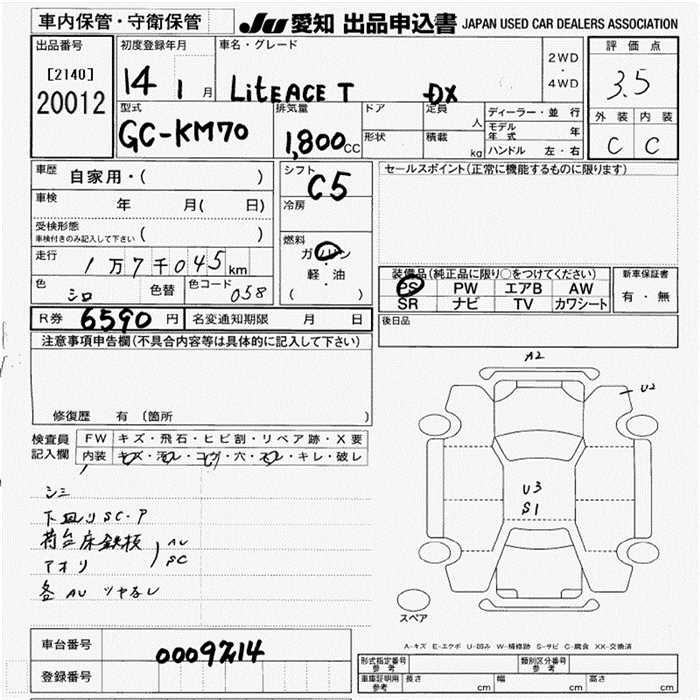 車内保管・守衛保管
JU 愛知 出品申込書 JAPAN USED CAR DEALERS ASSOCIATION
出品番号
[2140]
20012
初度登録年月
14 1 月
車名・グレード
LiteACE T DX
2WD
・
4WD
評価点
3.5
外装 内装
C C
型式
GC-KM70
排気量
1,800cc
ドア
形状
定員
人
積載
kg
ディーラー・並行
モデル年式 年
ハンドル 左・右
車歴 自家用・( )
車検 年 月( 日)
受検形態
車検付きのみ記入して下さい ( )
走行 1万7千045km
色 シロ 色替 色コード 058
シフト
C5
冷房
燃料
ガソリン
・
軽油
( )
セールスポイント(正常に機能するものに限ります)
装備品(純正品に限り○をつけてください)
PS PW エアB AW
SR ナビ TV カワシート
新車保証書
有・無
R券 6590円 名変通知期限 月 日
後日品
注意事項申告欄(不具合内容等は具体的に記入して下さい)
修復歴 有(箇所 )
検査員記入欄
FW キズ・飛石・ヒビ割・リペア跡・X要
内装 キズ・汚レ・コゲ・穴・スレ・キレ・破レ
シミ
下回り SC-P
荷台床鉄板
アオリ
AU
SC
各 AU ツヤなし
A2
U2
U3
S1
スペア
A-キズ E-エクボ U-凹み W-補修跡 S-サビ C-腐食 XX-交換済
車台番号 0009214
登録番号
形式指定番号 参考
類別区分番号 参考
車庫証明用 参考
長さ cm 幅 cm 高さ cm